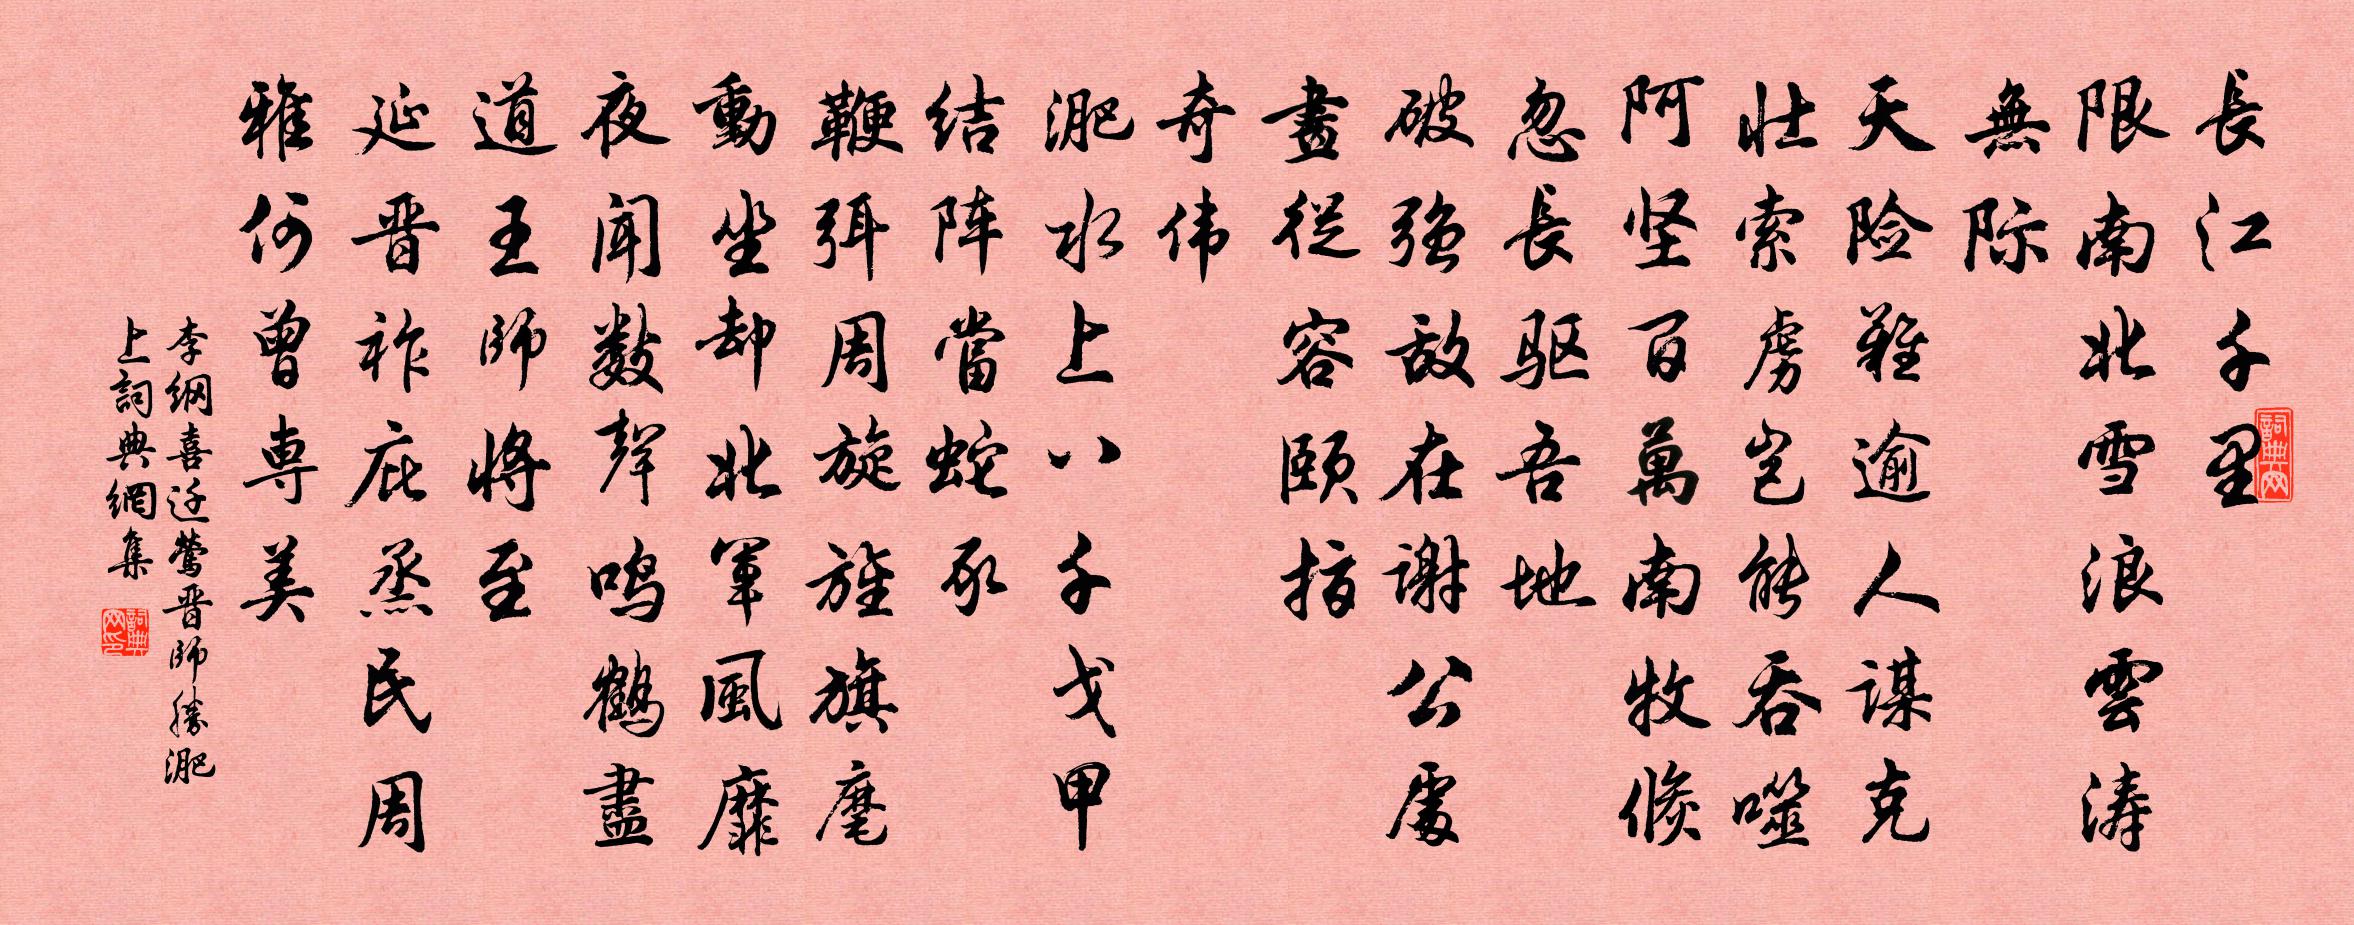 長江千里
限南北雪浪雲涛
無际
天险難逾人谋克
壮索虏岂能吞噬
阿坚百萬南牧倏
忽長驱吾地
破强敌在谢公處
畫從容颐指
奇伟
淝水上八千戈甲
结阵當蛇豕
鞭弭周旋旌旗麾
動坐却北軍風靡
夜闻數聲鸣鹤盡
道王師將至
延晋祚庇烝民周
雅何曾専美
李纲喜迁莺晋師勝淝
上詞典網集
詞典网
詞典网印